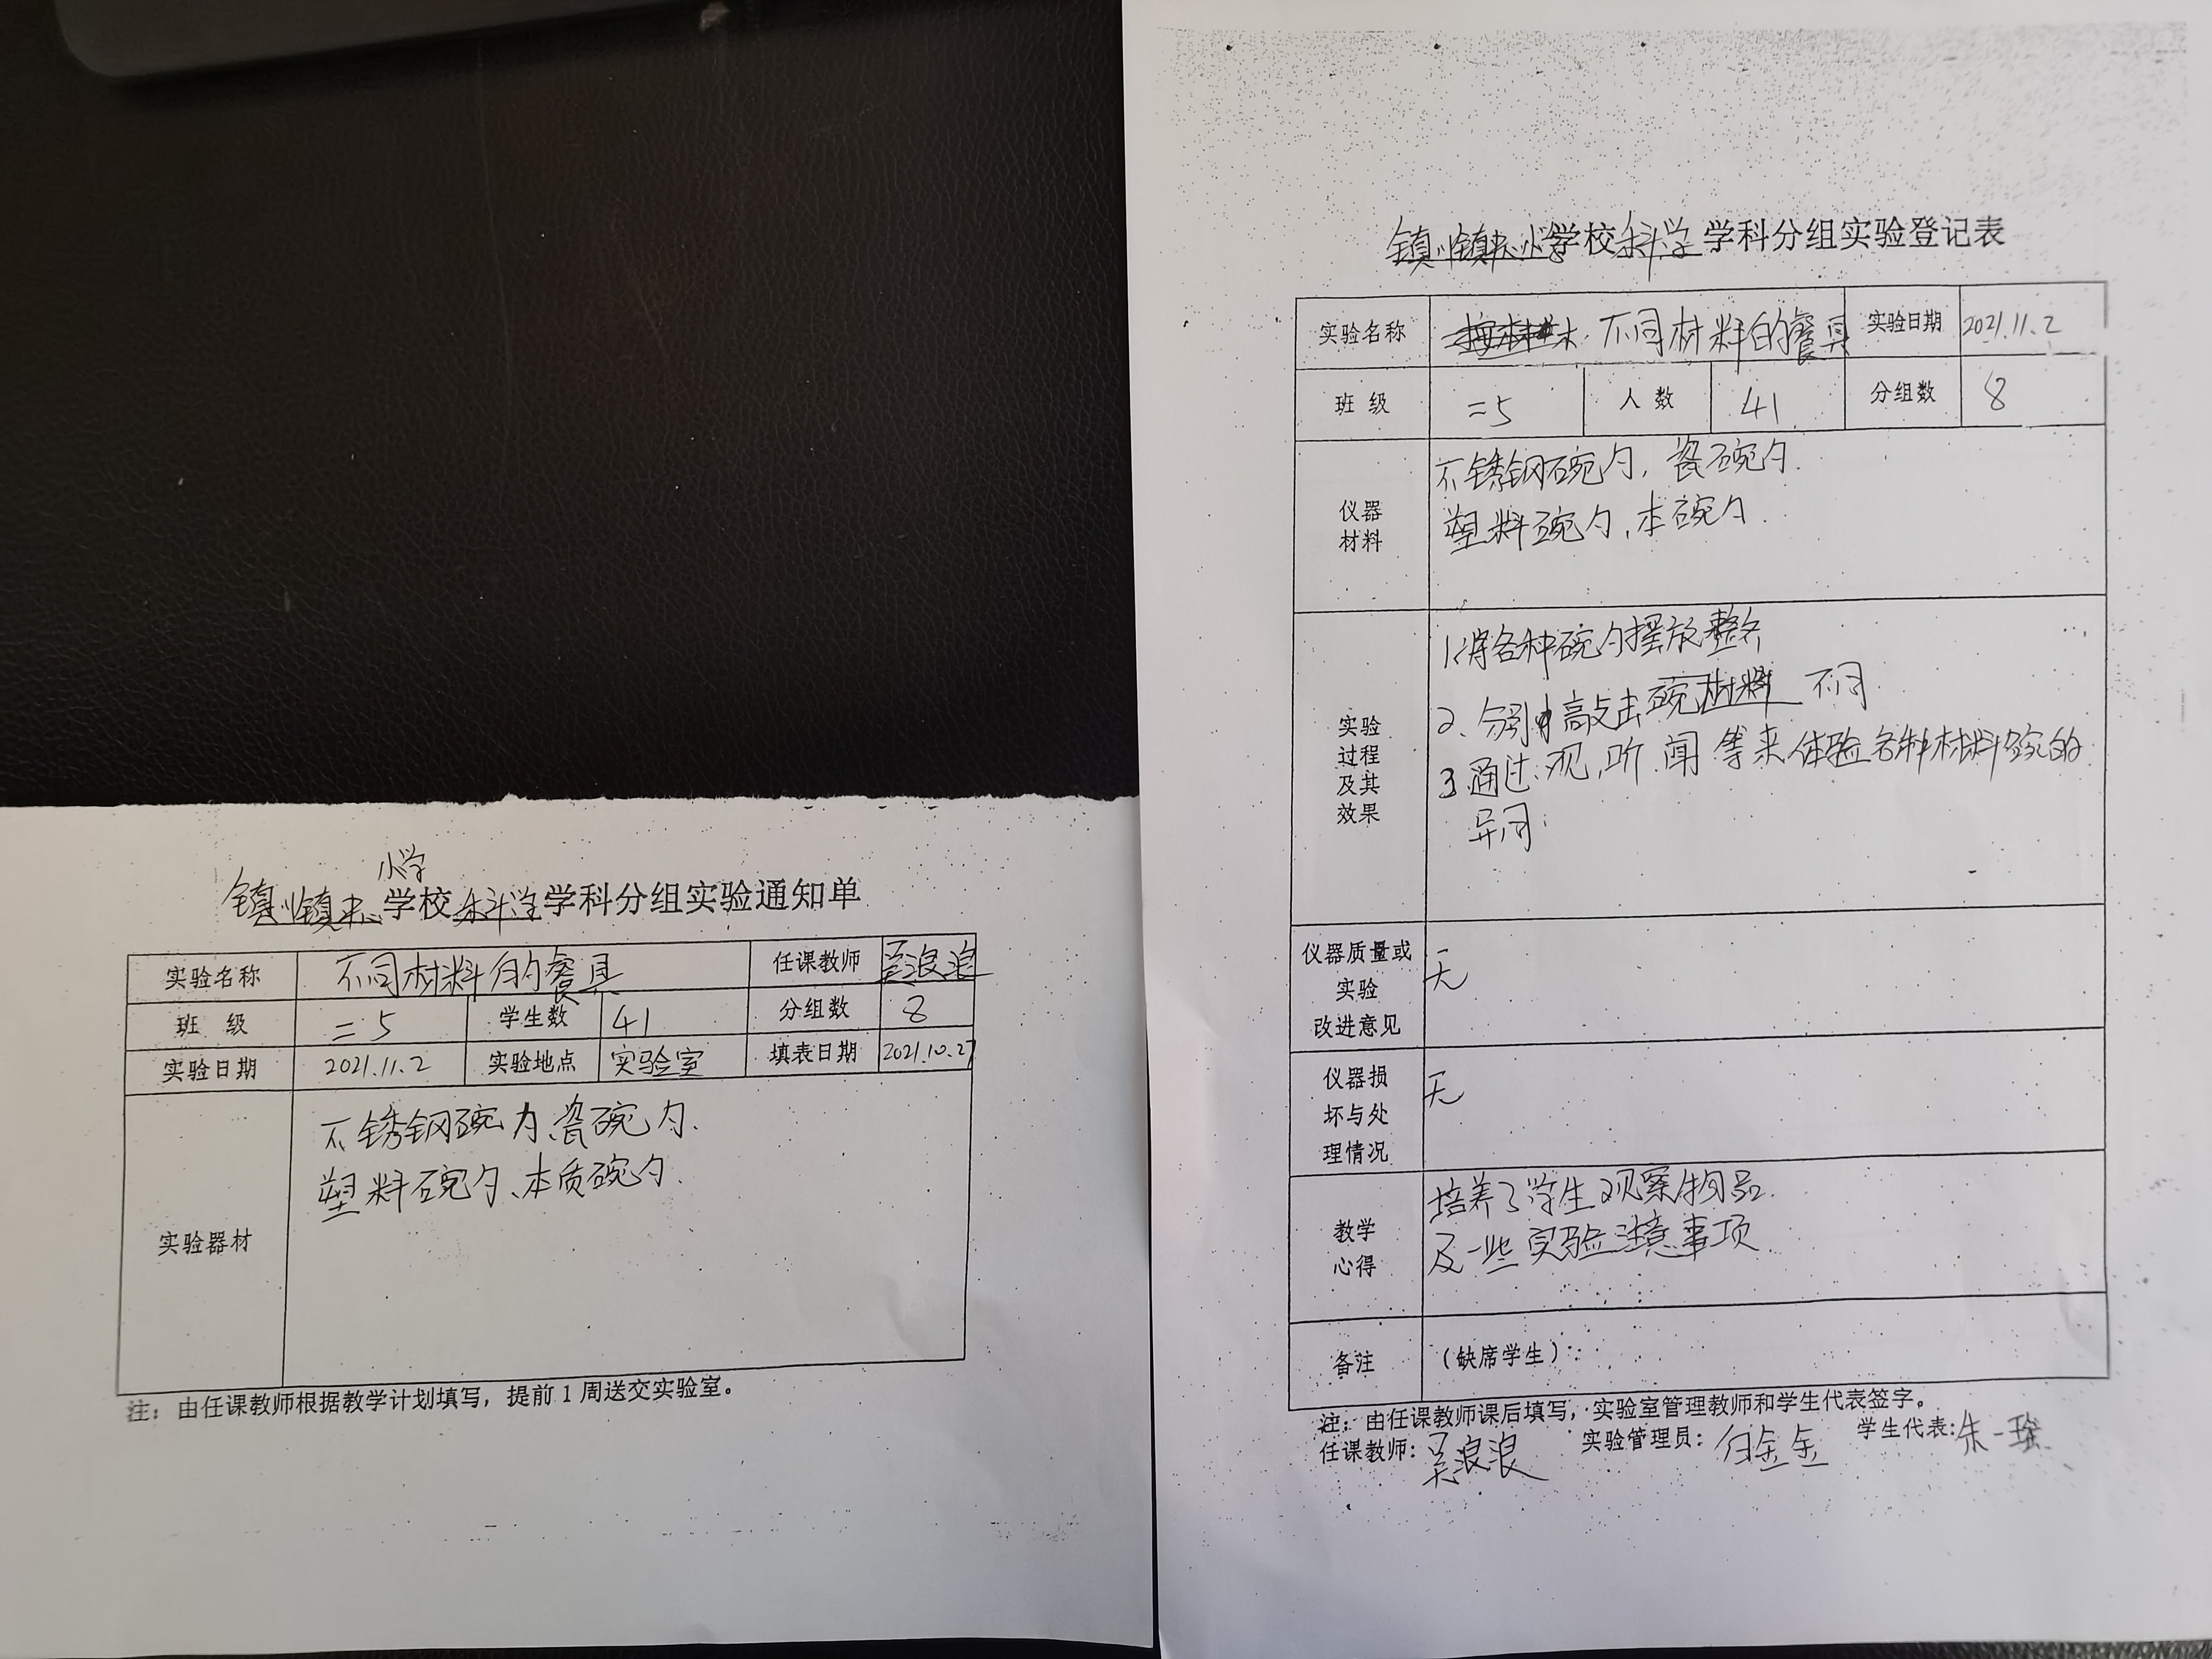 小学
镇川镇中心学校科学学科分组实验通知单
实验名称 不同材料的餐具 任课教师 吴浪浪
班 级 二5 学生数 41 分组数 8
实验日期 2021.11.2 实验地点 实验室 填表日期 2021.10.27
实验器材
不锈钢碗勺、瓷碗勺、
塑料碗勺、木质碗勺.
注：由任课教师根据教学计划填写，提前1周送交实验室。
镇川镇中心小学学校科学学科分组实验登记表
实验名称 不同材料的餐具 实验日期 2021.11.2
班 级 二5 人 数 41 分组数 8
仪器
材料
不锈钢碗勺，瓷碗勺.
塑料碗勺，木碗勺.
实验
过程
及其
效果
1.将各种碗勺摆放整齐
2、分别敲击碗 不同
3.通过观、听、闻等来体验各种材料碗的
异同.
仪器质量或
实验
改进意见
无
仪器损
坏与处
理情况
无
教学
心得
培养了学生观察物品.
及一些实验注意事项
备注 （缺席学生）：
注：由任课教师课后填写，实验室管理教师和学生代表签字。
任课教师：吴浪浪 实验管理员： 学生代表：朱一